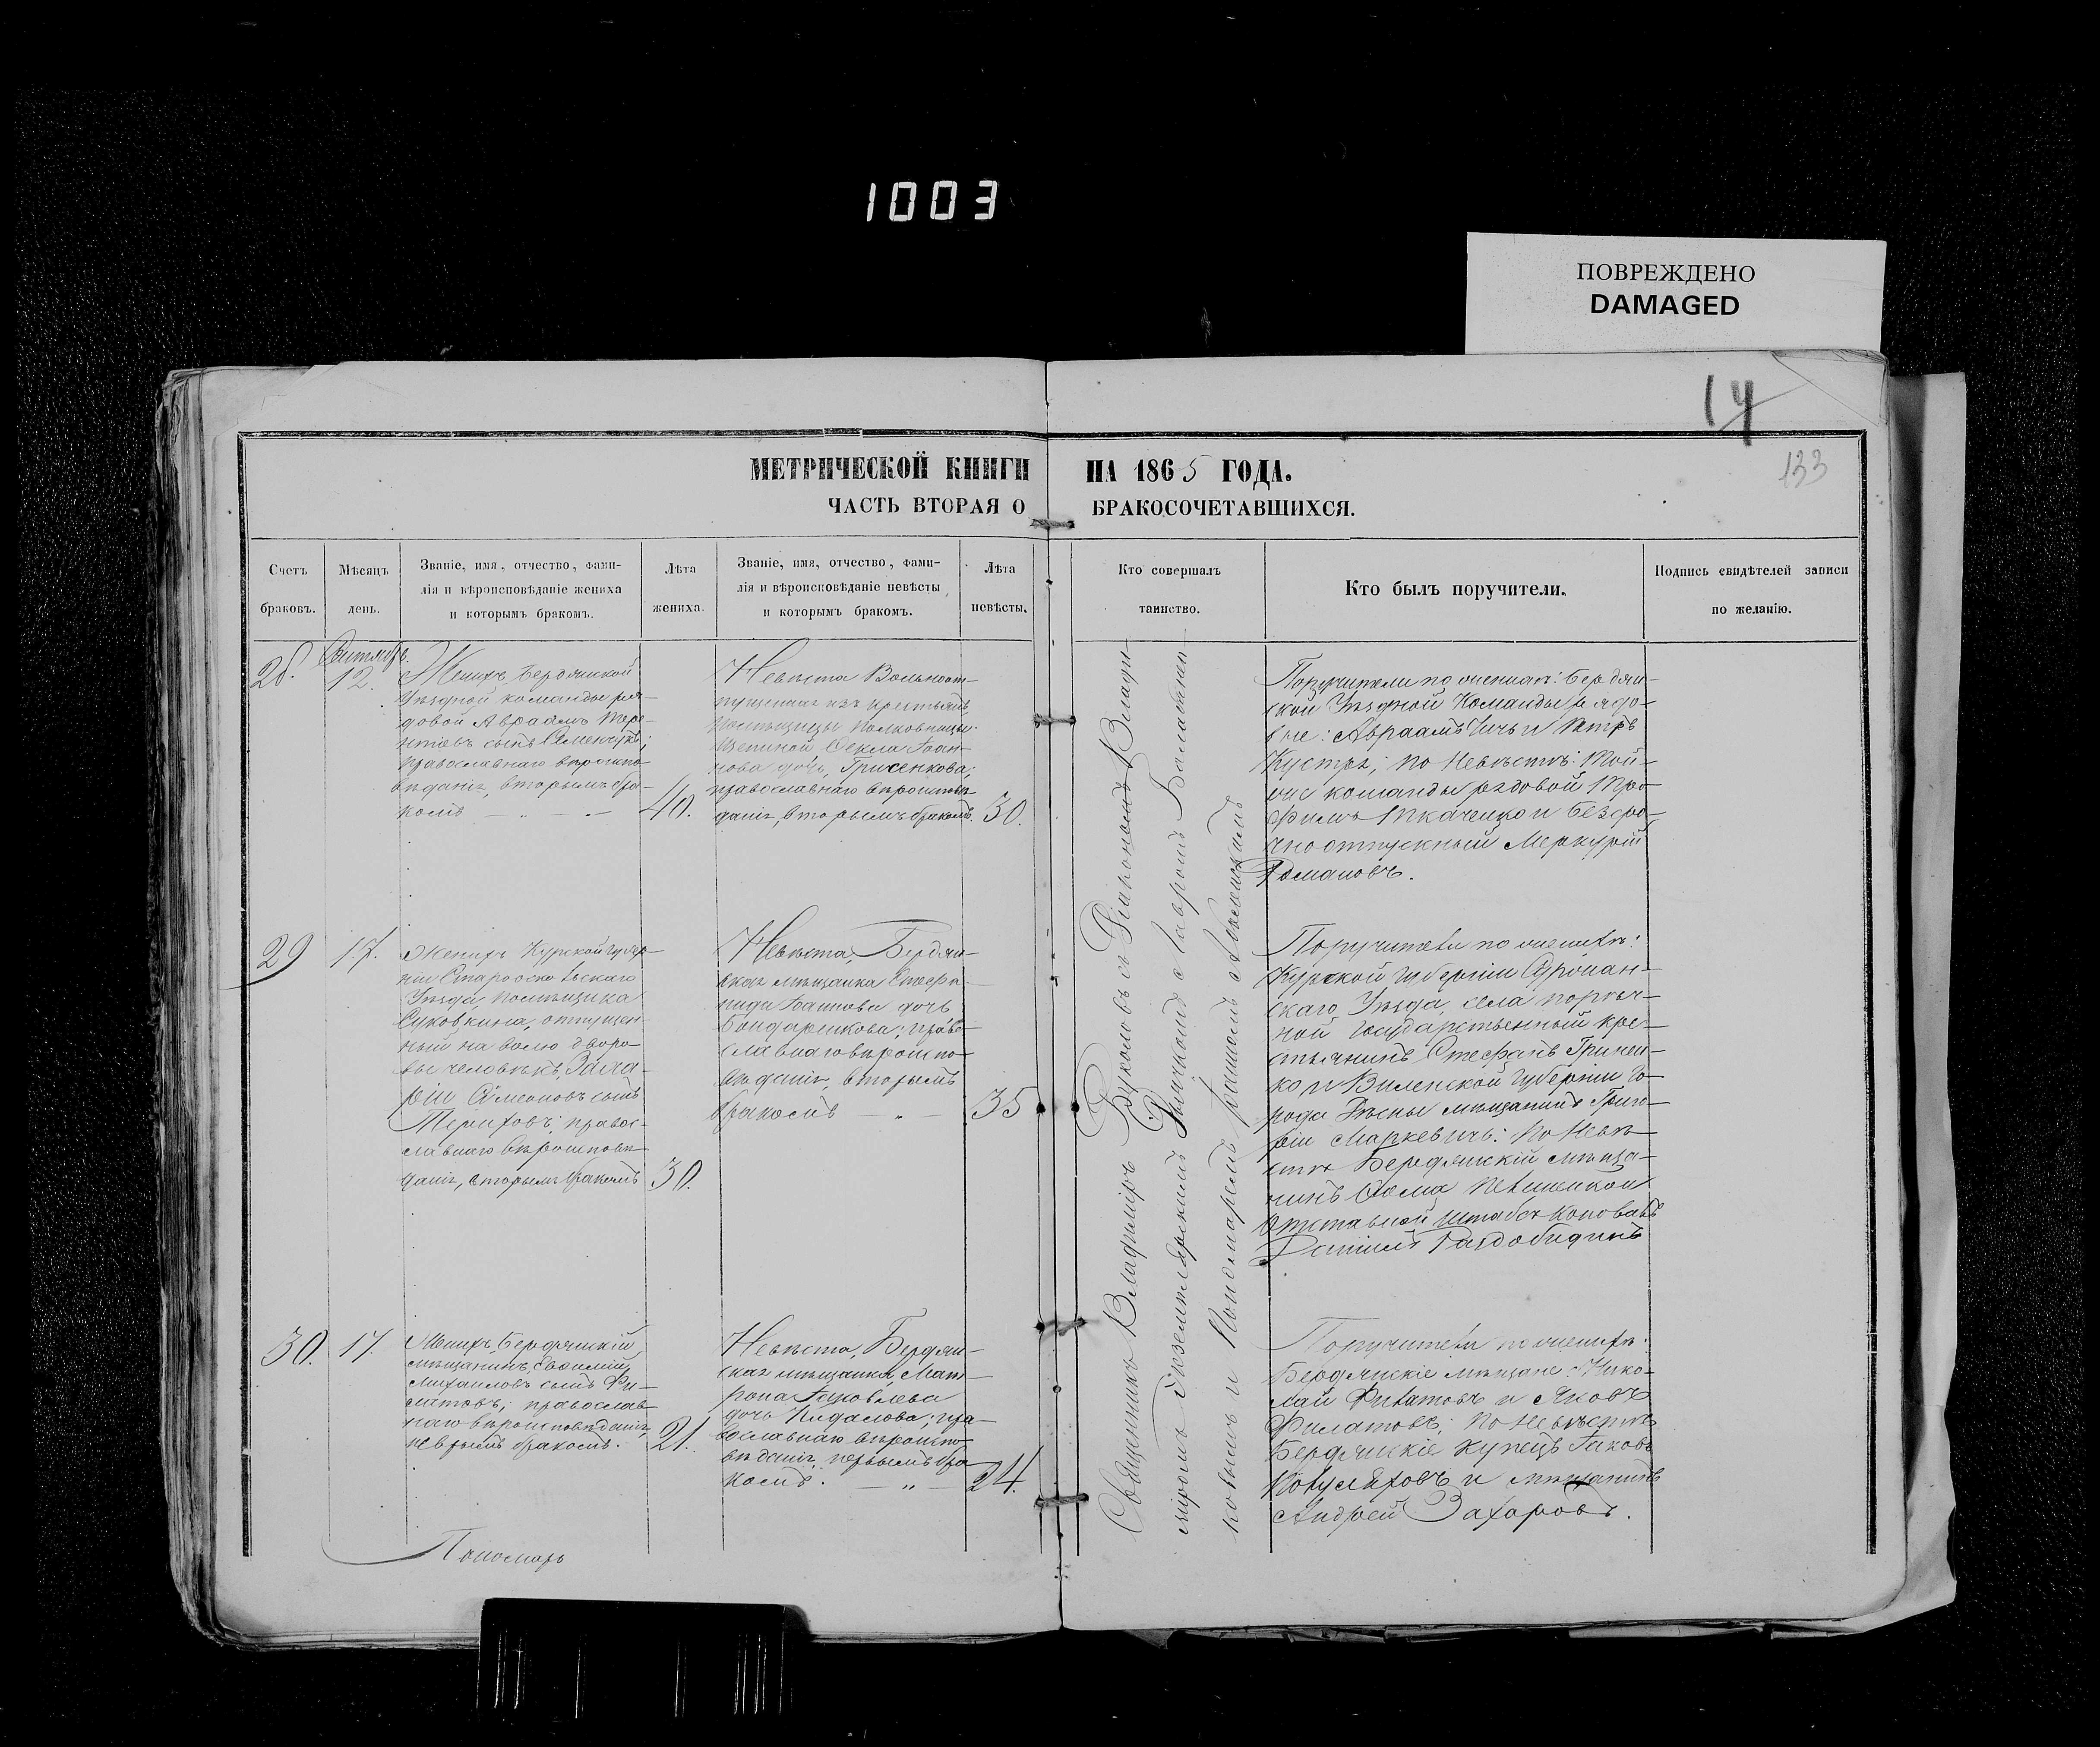 1003
ПОВРЕЖДЕНО
DAMAGED
14
133
МЕТРИЧЕСКОЙ КНИГИ НА 1865 ГОДА.
ЧАСТЬ ВТОРАЯ О БРАКОСОЧЕТАВШИХСЯ.
Счетъ браковъ.
Мѣсяцъ день.
Званіе, имя, отчество, фами-
лія и вѣроисповѣданіе жениха
и которымъ бракомъ.
Лѣта жениха.
Званіе, имя, отчество, фами-
лія и вѣроисповѣданіе невѣсты,
и которымъ бракомъ.
Лѣта невѣсты.
Кто совершалъ
таинство.
Кто былъ поручители.
Подпись свидѣтелей записи
по желанію.
28.
Сентябрь.
12.
Женихъ Бердянской
Уѣздной команды ря-
довой Авраамъ Тере-
нтіевъ сынъ Семенчукъ;
православнаго вѣроиспо-
вѣданія, вторымъ бра-
комъ
40.
Невѣста Вольноот-
пущенная изъ крестьянъ
помѣщицы Полковницы
Ѳекла Іоан-
нова дочь, Грисенкова;
православнаго вѣроисповѣ-
данія, вторымъ бракомъ.
30.
Поручители по женихѣ: Бердян-
ской Уѣздной Команды рядо-
вые: Авраамъ и Петръ
по невѣстѣ: той-
же команды рядовой Тро-
фимъ Ткаченко и безсро-
чноотпускный Меркурій
Романовъ.
29
17.
Женихъ Курской Губер-
ніи Старооскольскаго
Уѣзда, помѣщика
отпущен-
ный на волю дворо-
вы человѣкъ, Заха-
рій Симеоновъ сынъ
Териховъ; правос-
лавнаго вѣроисповѣ-
данія, вторымъ бракомъ
30.
Невѣста, Бердян-
ская мѣщанка Стефа-
нида Іоаннова дочь
Бондаренкова; право-
славнаго вѣроиспо-
вѣданія, вторымъ
бракомъ
35
Поручители по женихѣ:
Курской губерніи
скаго Уѣзда, села
ной государственный кре-
стьянинъ Стефанъ Гринен-
ко и Виленской Губерніи го-
рода мѣщанинъ Григо-
рій Маркевичь: по невѣ-
стѣ Бердянскій мѣща-
нинъ Ѳома
отставной Коновалъ
Даніилъ
30.
17.
Женихъ, Бердянскій
мѣщанинъ, Евѳимій
Михаиловъ сынъ Фи-
латовъ; православ-
наго вѣроисповѣданія,
первымъ бракомъ.
21.
Невѣста, Бердян-
ская мѣщанка, Мат-
рона Іаковлева
дочь Кидалова; пра-
вославнаго вѣроиспо-
вѣданія, первымъ бра-
комъ.
24.
Поручители по женихѣ:
Бердянскіе мѣщане: Нико-
лай Филатовъ и Яковъ
Филатовъ; по невѣстѣ
Бердянскіе купецъ Іаковъ
и мѣщанинъ
Андрей Захаровъ.
Священникъ Владиміръ Буколовъ съ Діакономъ Влади-
міромъ
и Пономаремъ
Пономарь